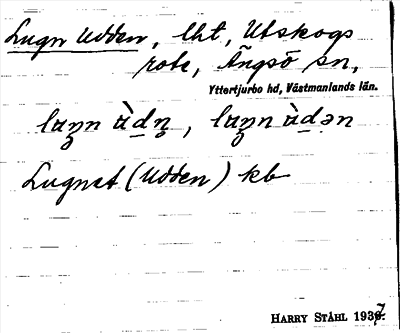 Lugn Udden, lht, Utskogs
rote, Ängsö sn,
Yttertjurbo hd, Västmanlands län.
Lugnet (Udden) kb
HARRY STÅHL 1937.